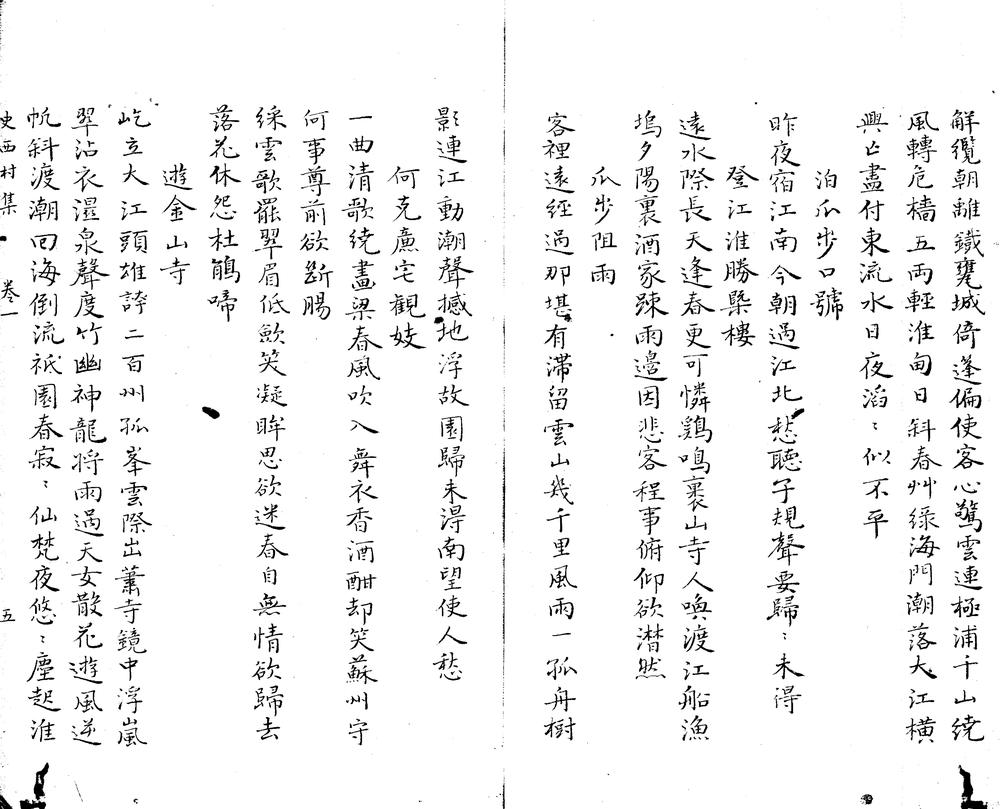 解纜朝離鐵甕城倚逢偏使客心驚雲連極浦千山繞
風轉危檣五兩輕淮甸日斜春艸綠海門潮落大江橫
興亡盡付東流水日夜滔〻似不平
泊瓜步口號
昨夜宿江南今朝過江北愁聽子規聲要歸〻未得
登江淮勝槩樓
遠水際長天逢春更可憐鷄鳴裏山寺人喚渡江船漁
塢夕陽裏酒家疎雨邊因悲客程事俯仰欲潸然
瓜步阻雨
客裡遠經過那堪有滯留雲山幾千里風雨一孤舟樹
影連江動潮聲撼地浮故園歸未淂南望使人愁
何克㢘宅觀妓
一曲清歌繞畫梁春風吹入舞衣香酒酣却笑蘇州守
何事尊前欲斷腸
綵雲歌罷翠眉低歛笑凝眸思欲迷春自無情欲歸去
落花休怨杜鵑啼
遊金山寺
屹立大江頭雄誇二百州孤峯雲際出蕭寺鏡中浮嵐
翠沾衣溼泉聲度竹幽神龍将雨過天女散花遊風逆
帆斜渡潮回海倒流祇園春寂〻仙梵夜悠〻塵起淮
史西村集 卷一 五